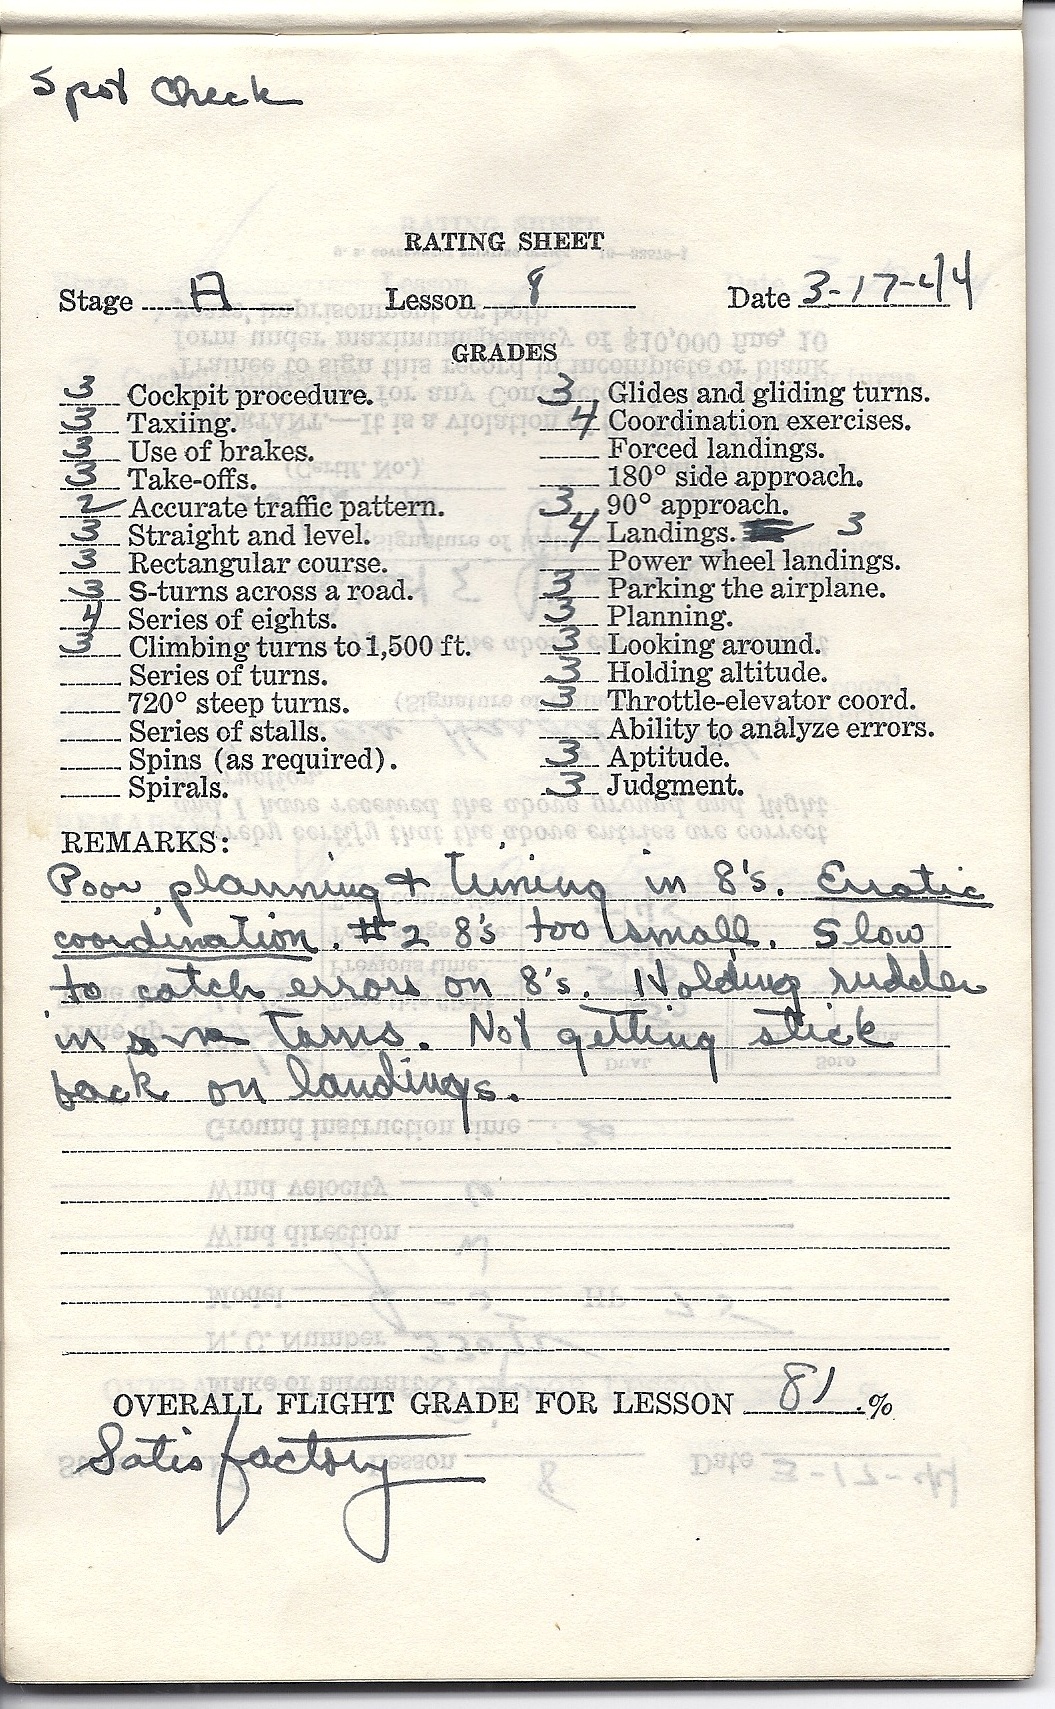 Spot Check
RATING SHEET
Stage A Lesson 8 Date 3-17-44
GRADES
3 Cockpit procedure.
3 Taxiing.
3 Use of brakes.
3 Take-offs.
2 Accurate traffic pattern.
3 Straight and level.
3 Rectangular course.
3 S-turns across a road.
4 Series of eights.
3 Climbing turns to 1,500 ft.
Series of turns.
720° steep turns.
Series of stalls.
Spins (as required).
Spirals.
3 Glides and gliding turns.
4 Coordination exercises.
Forced landings.
180° side approach.
3 90° approach.
4 Landings. 3
Power wheel landings.
3 Parking the airplane.
3 Planning.
3 Looking around.
3 Holding altitude.
3 Throttle-elevator coord.
Ability to analyze errors.
3 Aptitude.
3 Judgment.
REMARKS:
Poor planning & timing in 8's. Erratic
coordination. #2 8's too small. Slow
to catch errors on 8's. Holding rudder
in some turns. Not getting stick
back on landings.
OVERALL FLIGHT GRADE FOR LESSON 81 %
Satisfactory